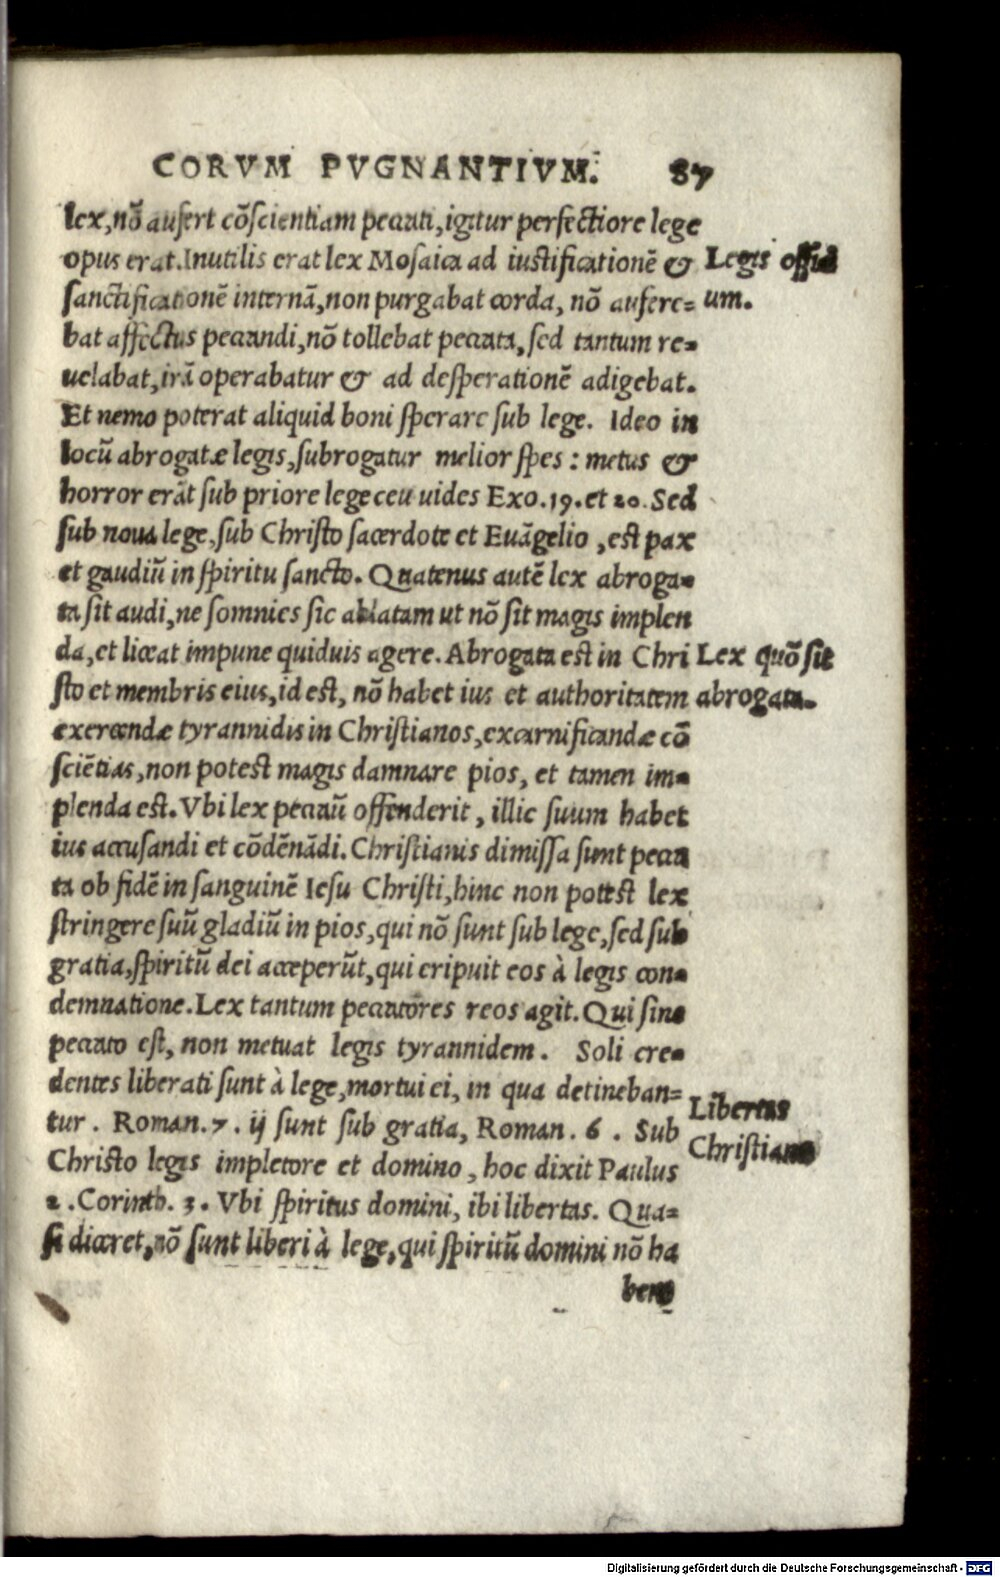 CORVM PVGNANTIVM. 87
lex, nõ aufert cõscientiam peccati, igitur perfectiore lege
opus erat. Inutilis erat lex Mosaica ad iustificationẽ &
Legis offici
sanctificationẽ internã, non purgabat corda, nõ aufere=
um.
bat affectus peccandi, nõ tollebat peccata, sed tantum re=
uelabat, irã operabatur & ad desperationẽ adigebat.
Et nemo poterat aliquid boni sperare sub lege. Ideo in
locũ abrogatæ legis, subrogatur melior spes: metus &
horror erãt sub priore lege ceu uides Exo. 19. et 20. Sed
sub noua lege, sub Christo sacerdote et Euãgelio, est pax
et gaudiũ in spiritu sancto. Quatenus autẽ lex abroga=
ta sit audi, ne somnies sic ablatam ut nõ sit magis implen
da, et liceat impune quiduis agere. Abrogata est in Chri
Lex quõ sit
sto et membris eius, id est, nõ habet ius et authoritatem
abrogata.
exercendæ tyrannidis in Christianos, excarnificandæ cõ
sciẽtias, non potest magis damnare pios, et tamen im=
plenda est. Vbi lex peccatũ offenderit, illic suum habet
ius accusandi et cõdẽnãdi. Christianis dimissa sunt pecca
ta ob fidẽ in sanguinẽ Iesu Christi, hinc non potest lex
stringere suũ gladiũ in pios, qui nõ sunt sub lege, sed sub
gratia, spiritũ dei acceperũt, qui eripuit eos à legis con=
demnatione. Lex tantum peccatores reos agit. Qui sine
peccato est, non metuat legis tyrannidem. Soli cre=
dentes liberati sunt à lege, mortui ei, in qua detineban=
Libertas
tur. Roman. 7. ij sunt sub gratia, Roman. 6. Sub
Christiana
Christo legis impletore et domino, hoc dixit Paulus
2. Corinth. 3. Vbi spiritus domini, ibi libertas. Qua=
si diceret, nõ sunt liberi à lege, qui spiritũ domini nõ ha
bent
Digitalisierung gefördert durch die Deutsche Forschungsgemeinschaft - DFG